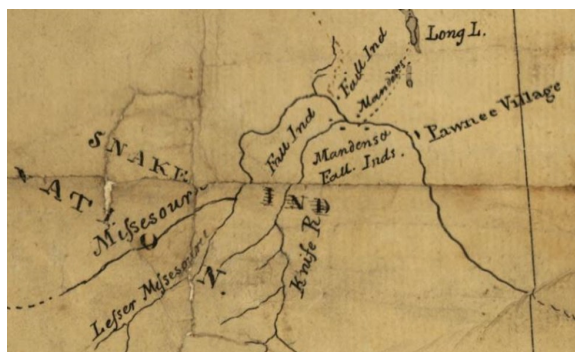 Long L.
Fall Ind
Mandens
Pawnee Village
Fall Ind
Mandens &
Fall. Inds.
SNAKE
IND
NATION
Missesouri
Lesser Missesourie
Knife R